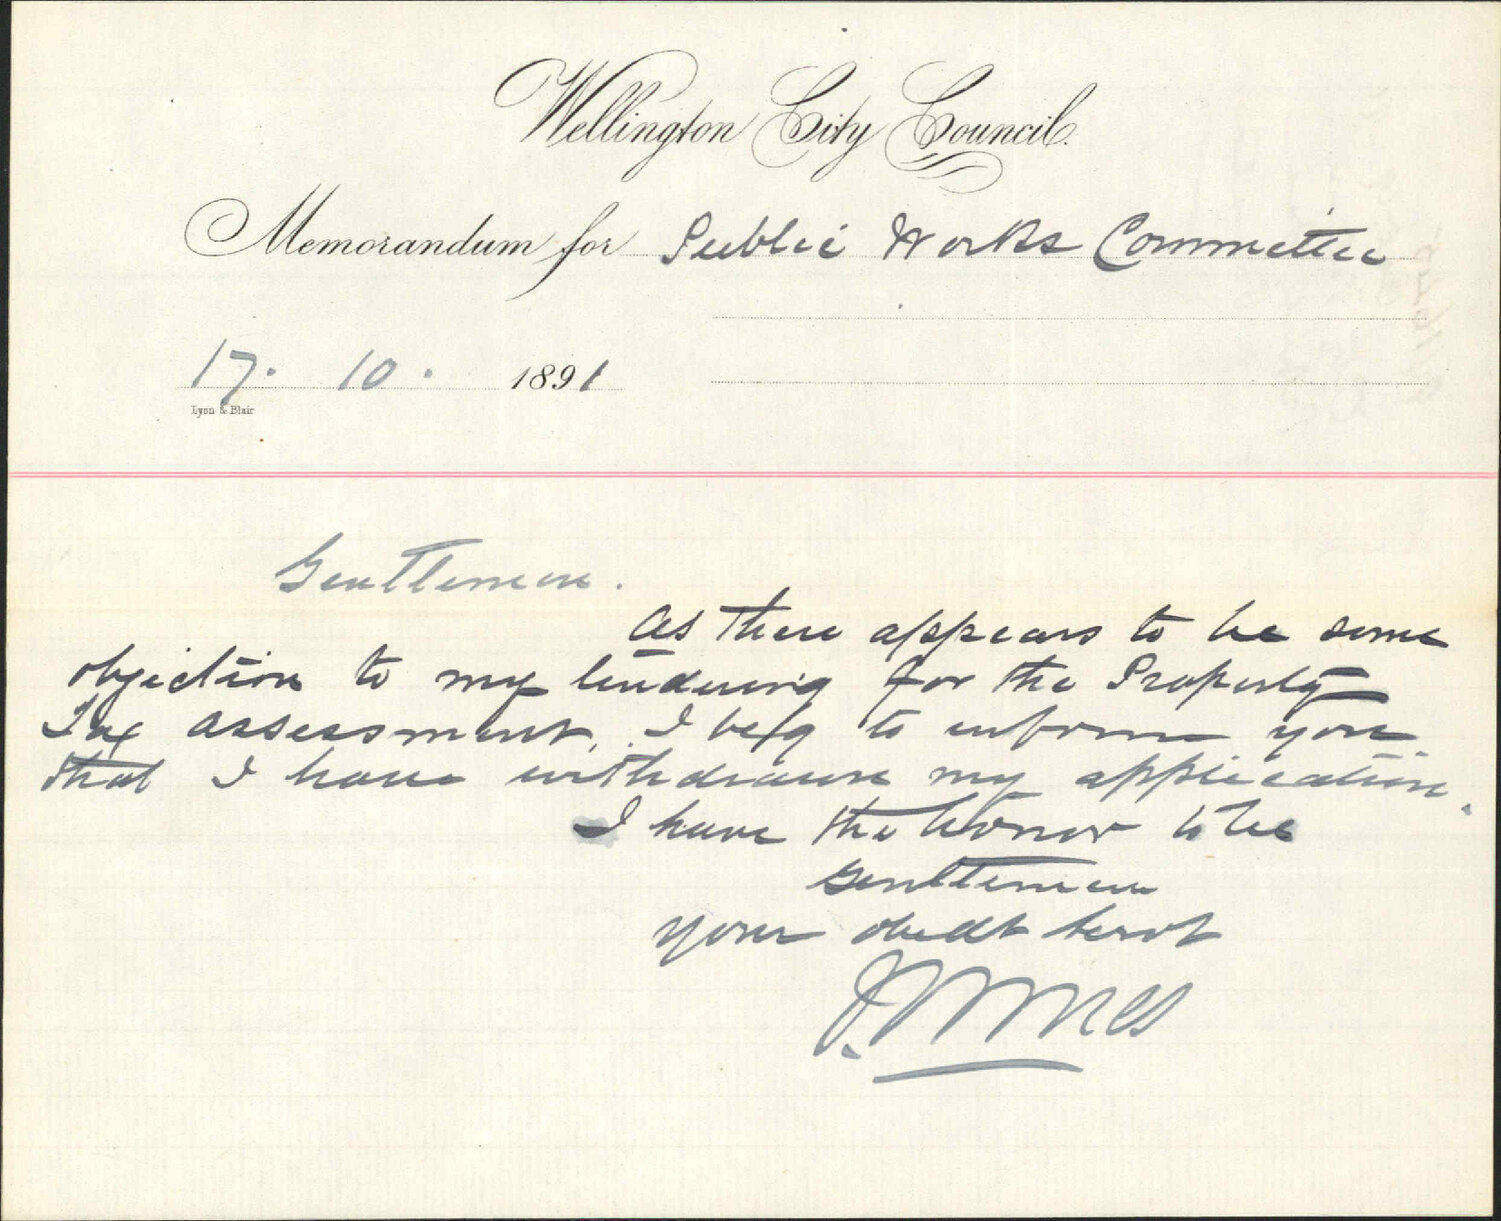 Wellington City Council.
Memorandum for Public Works Committee
17. 10. 1891
Lyon & Blair
Gentlemen.
As there appears to be some
objection to my tendering for the Property
Tax assessment, I beg to inform you
that I have withdrawn my application.
I have the honor to be
Gentlemen
your obedt servt